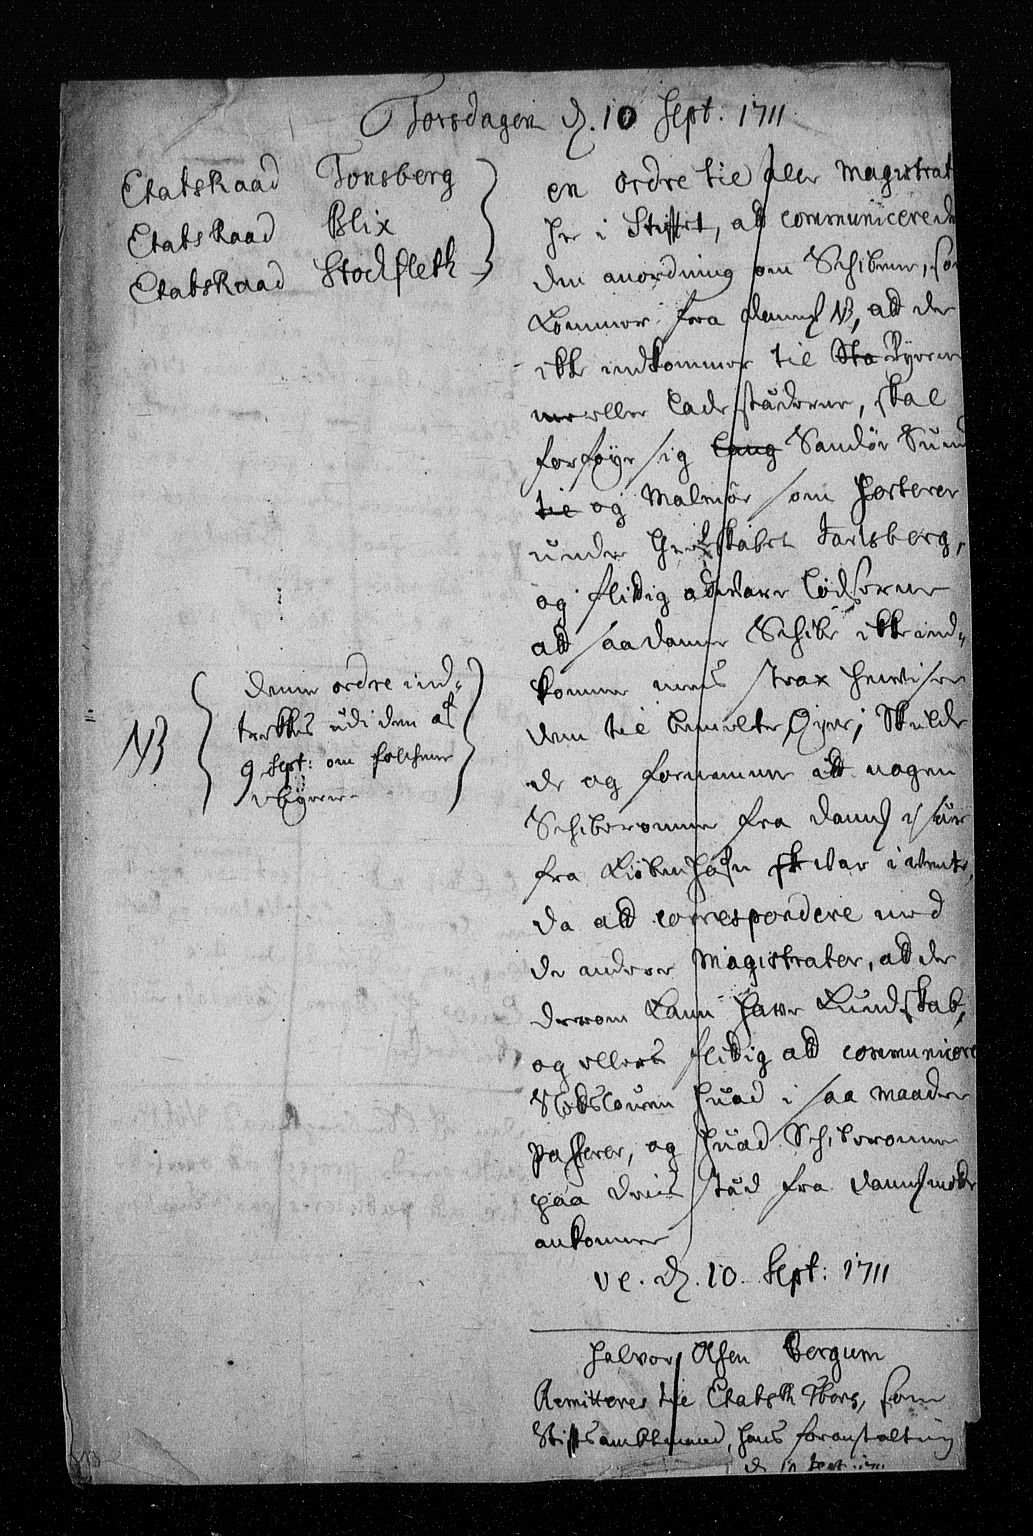 Torsdagen d. 10 Sept. 1711
EtatsRaad Tonsberg
EtatsRaad Blix
EtatsRaad Stockfleth
en ordre til aller Magistrat
her i Stifftet, att communicere
den anordning om Schibene, som
kommer fra Danm NB, att der
ikke indkommer til Sta Byerne
eller ladestæderne, skal
forføye sig lang Sandøe Sund
til og Malmøe som sorterer
under Grefskabet Jarlsberg,
og flittig advare lodserne
att saadanne Schibe ikke ind-
kommer mens strax henvise
dem til bemelte Øyer, Skulde
de og fornemme att nogen
Schiberomme fra Danm i sær
fra Kiøbenhafn skal var i vente,
da att correspondere med
de andere Magistrater, att de
derom kann have Kundskab,
og ellers flittig att communicere
Slotsloven huad i saa maader
passerer, og huad Schiberomme
paa deris stæd fra Danmmark
ankommer
ve. d. 10. Sept: 1711
NB
denne ordre ind-
trekkes udi den af
9 Sept: om
Byerne
Halvor Olsen Bergum
Remitteres til EtatsR Tbers, som
Stiftsambtmand, hans foranstaltning
d 10 Sept. 1711